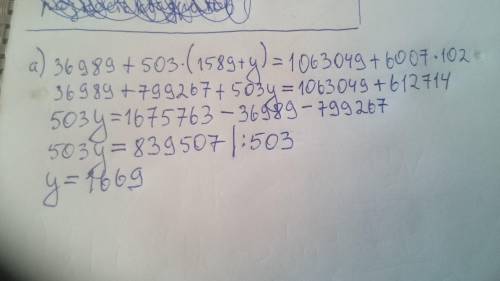 a) 36989+503·(1589+y)=1063049+6007·102
36989+799267+503y=1063049+612714
503y=1675763-36989-799267
503y=839507|:503
y=1669